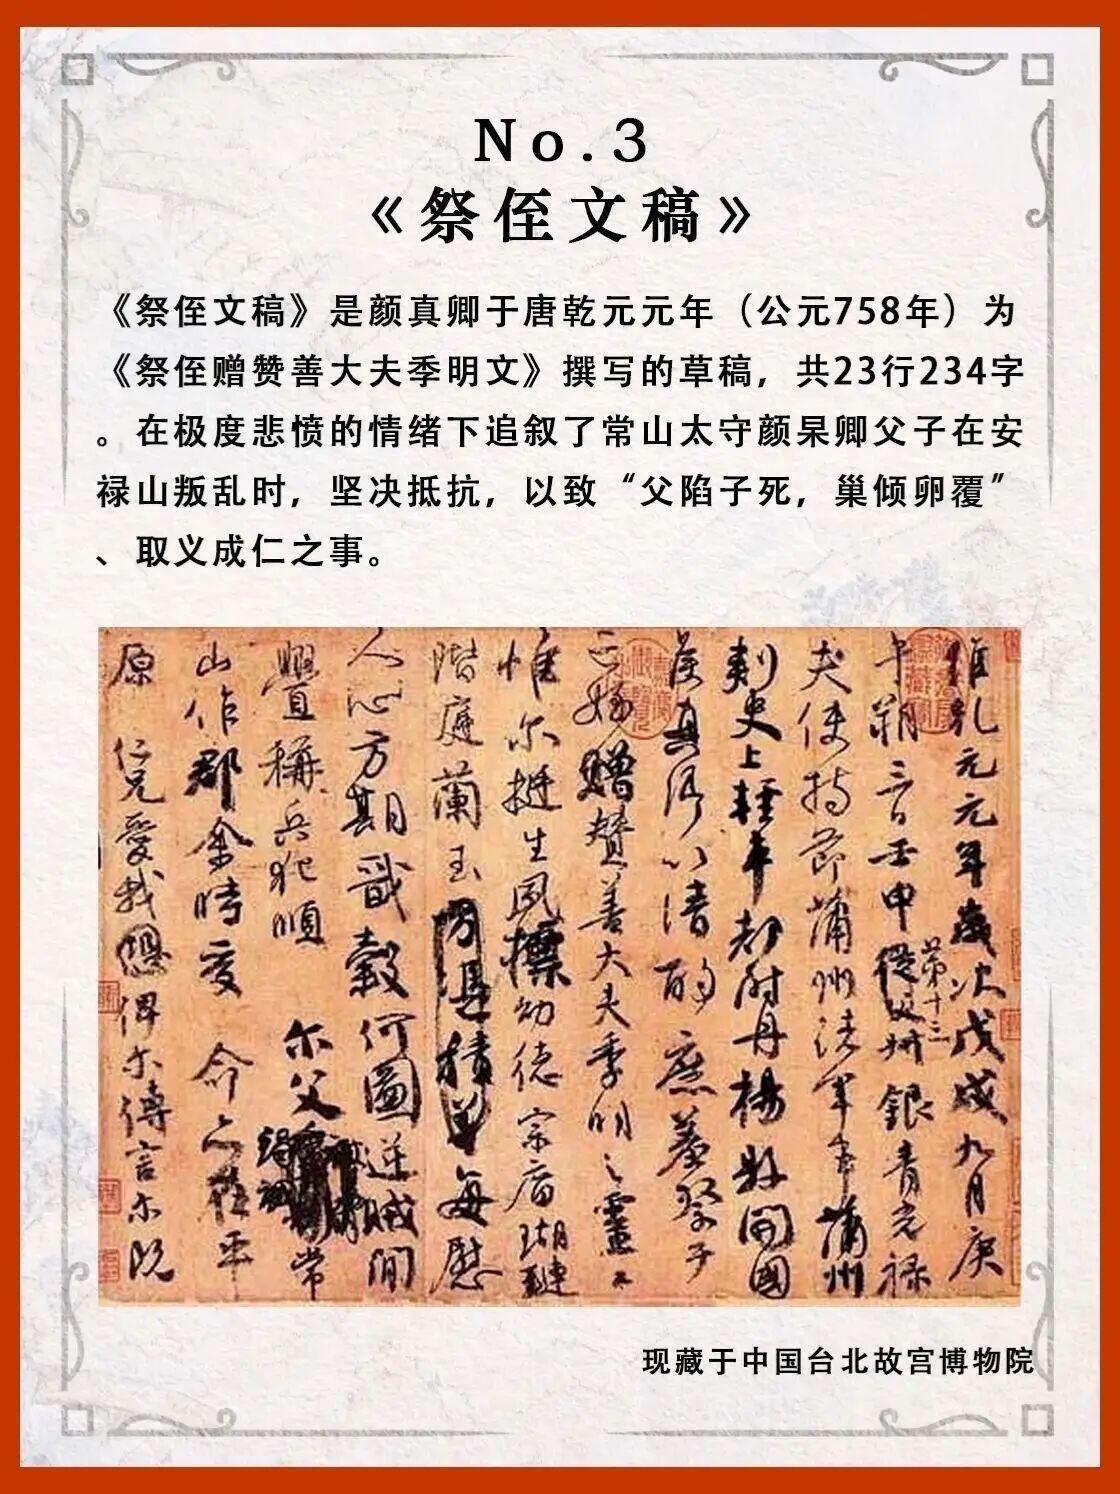 No.3
《祭侄文稿》
《祭侄文稿》是颜真卿于唐乾元元年（公元758年）为
《祭侄赠赞善大夫季明文》撰写的草稿，共23行234字
。在极度悲愤的情绪下追叙了常山太守颜杲卿父子在安
禄山叛乱时，坚决抵抗，以致“父陷子死，巢倾卵覆”
、取义成仁之事。
維乾元元年歲次戊戌九月庚
午朔三日壬申從父第十三叔銀青光祿
夫使持節蒲州諸軍事蒲州
刺史上輕車都尉丹楊縣開國
侯真卿以清酌庶羞祭于
亡姪贈贊善大夫季明之靈曰
惟尔挺生夙標幼德宗廟瑚璉
階庭蘭玉每慰
人心方期戩穀何圖逆賊間
釁稱兵犯順尔父常
山作郡余時受命亦在平
原仁兄愛我俾尔傳言尔既
现藏于中国台北故宫博物院